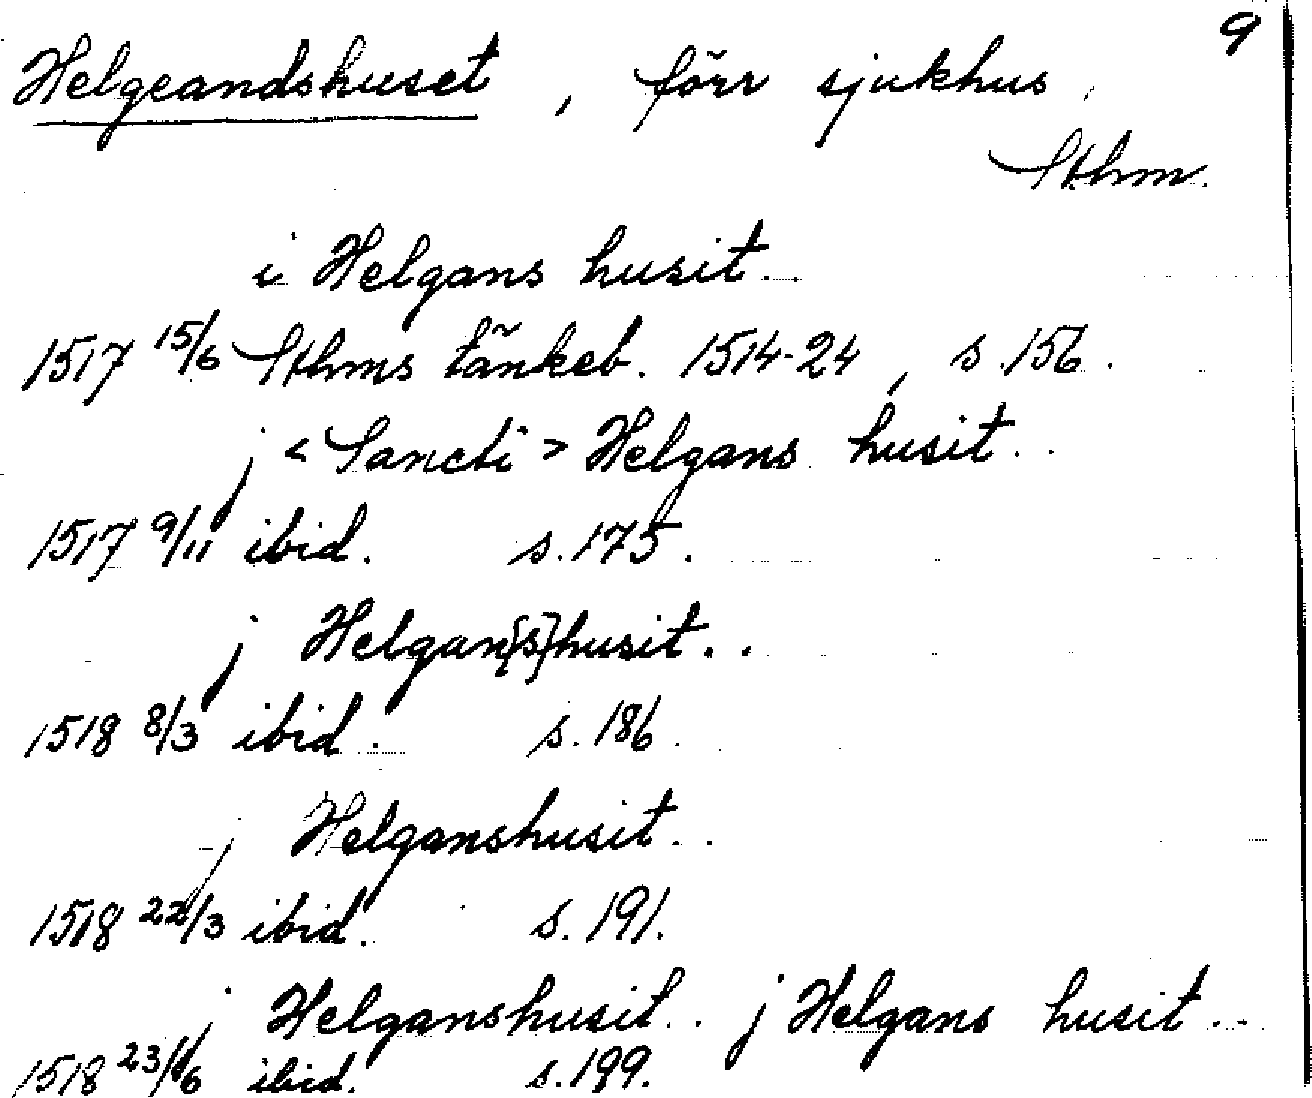 9
Helgeandshuset, förr sjukhus,
Sthm.
i Helgans husit..
1517 15/6 Sthms tänkeb. 1514-24, s. 156.
j <Sancti> Helgans husit..
1517 9/11 ibid. s. 175.
j Helgan{s}husit..
1518 8/3 ibid. s. 186.
j Helganshusit..
1518 22/3 ibid. s. 191.
j Helganshusit.. j Helgans husit..
1518 23/6 ibid. s. 199.